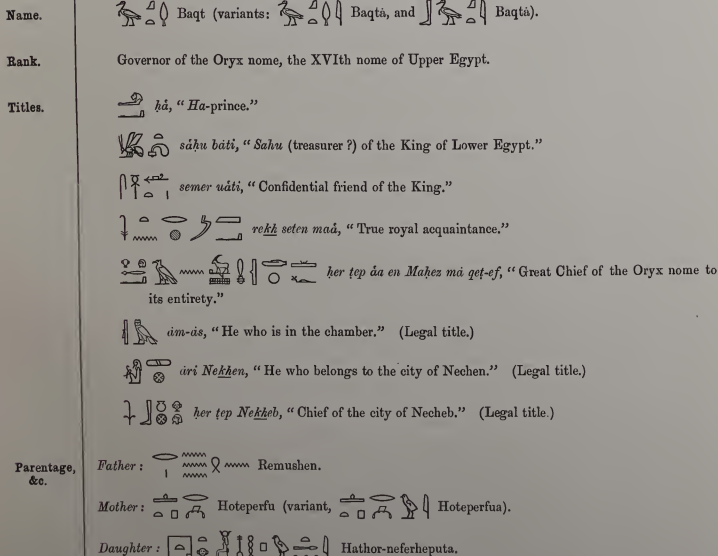 Name. Baqt (variants: Baqtȧ, and Baqtȧ).
Rank. Governor of the Oryx nome, the XVIth nome of Upper Egypt.
Titles. ḥȧ, “Ha-prince.”
sȧḥu bȧti, “Sahu (treasurer ?) of the King of Lower Egypt.”
semer uȧti, “Confidential friend of the King.”
rekh seten maȧ, “True royal acquaintance.”
ḥer ṭep ȧa en Maḥez mȧ qeṭ-ef, “Great Chief of the Oryx nome to
its entirety.”
ȧm-ȧs, “He who is in the chamber.” (Legal title.)
ȧri Nekhen, “He who belongs to the city of Nechen.” (Legal title.)
ḥer ṭep Nekheb, “Chief of the city of Necheb.” (Legal title.)
Parentage, &c. Father: Remushen.
Mother: Hoteperfu (variant, Hoteperfua).
Daughter: Hathor-neferheputa.